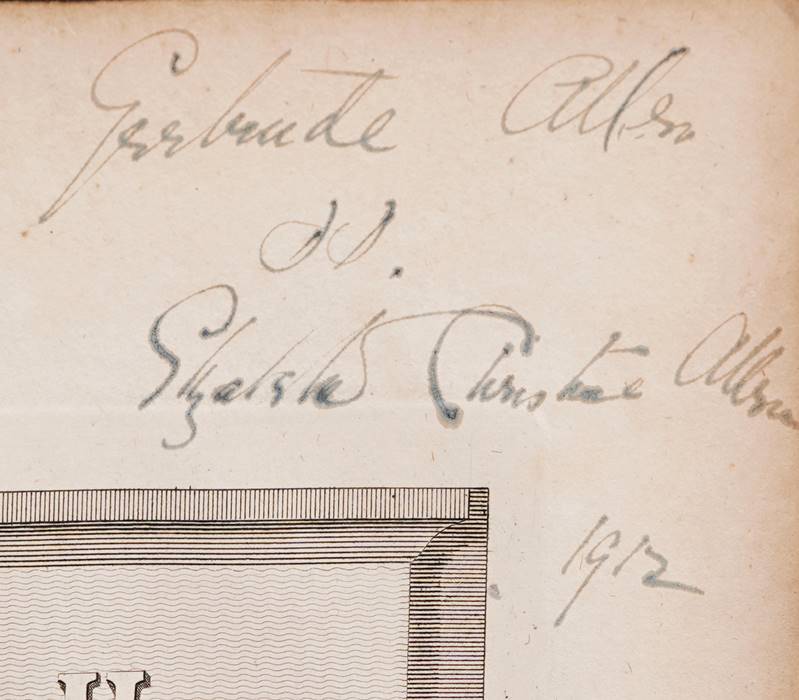 Gertrude Allen
d d.
Elizabeth Christine Allen
1912